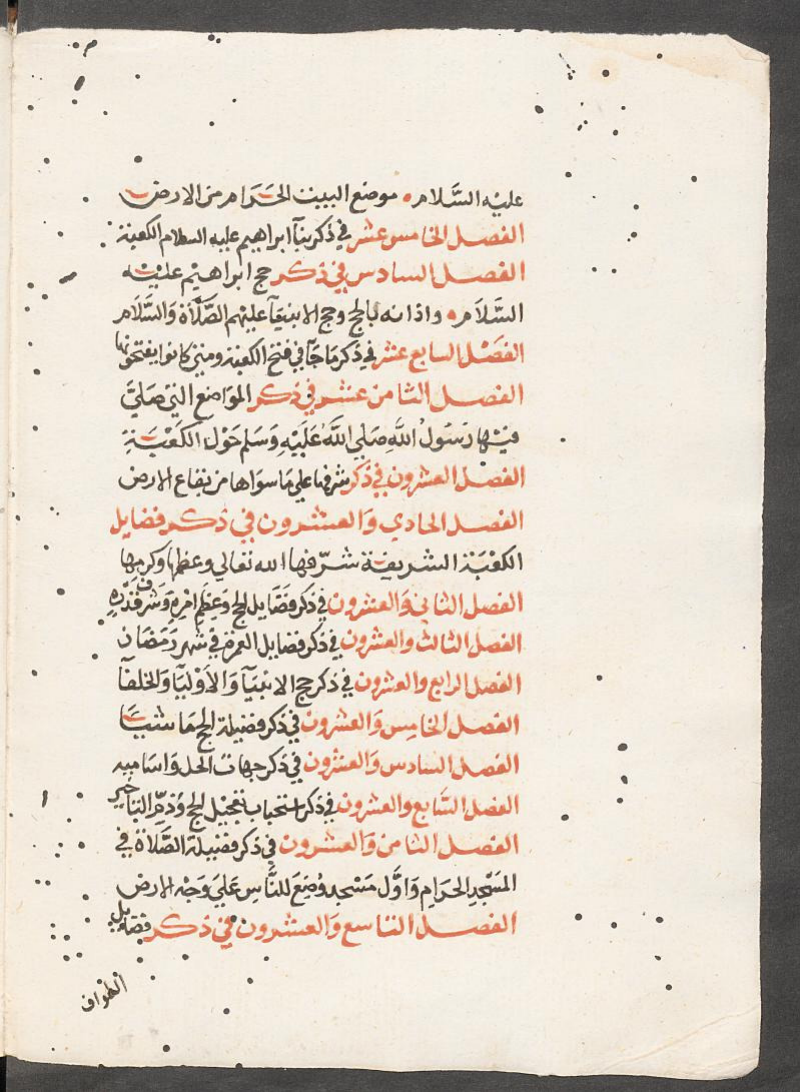 عليه السَّلام موضع البيت الحَرَام من الارض
الفصل الخامس عشر في ذكر بنآ ابراهيم عليه السلام الكعبة
الفصل السادس في ذكر حج ابراهيم عليْه
السَّلَام واذانه بالحج وحج الانبيَآ عليهم الصَّلَاة وَالسَّلَام
الفصْل السابع عشر في ذكر مَا جَآ في فتح الكعبة ومتى كانوا يفتحونها
الفصل الثامن عشر في ذكر الموَاضع التي صَليَّ
فيْها رَسُولُ اللَّهِ صَلي اللَّهُ عَلَيْهِ وَسَلم حَوْل الكَعْبَةِ
الفصْل العشرون في ذكر شرفها علي مَا سوَاها من بقاع الارض
الفصل الحادي وَالعشرون في ذكر فضايل
الكعْبَة الشريفة شرّفها الله تعالي وعظمها وكرمها
الفصل الثاني وَالعشرون في ذكر فضَايل الحج وَعِظَم امْرِهِ وَشرف قدْرِهِ
الفصل الثالث والعشرون في ذكر فضايل العمرة في شهر رَمَضَان
الفصل الرابع والعشرون في ذكر حج الانبيَآ وَالأَوْليَآ وَالخلفآ
الفصل الخامِس وَالعشرون في ذكر فضيلة الحج مَاشيًا
الفصل السادس وَالعشرون في ذكر جهات الحل وَاسَاميه
الفصل السَّابع والعشرون في ذكر استحباب تعجيل الحج وَذمّ التاخير
الفصل الثامن وَالعشرون في ذكر فضيلة الصَّلَاة في
المَسْجِد الحَرَام وَاوَّل مَسْجد وُضِعَ للنَّاسِ عَليَ وَجْه الارض
الفصل التاسع وَالعشرون في ذكر فضايل
الطواف